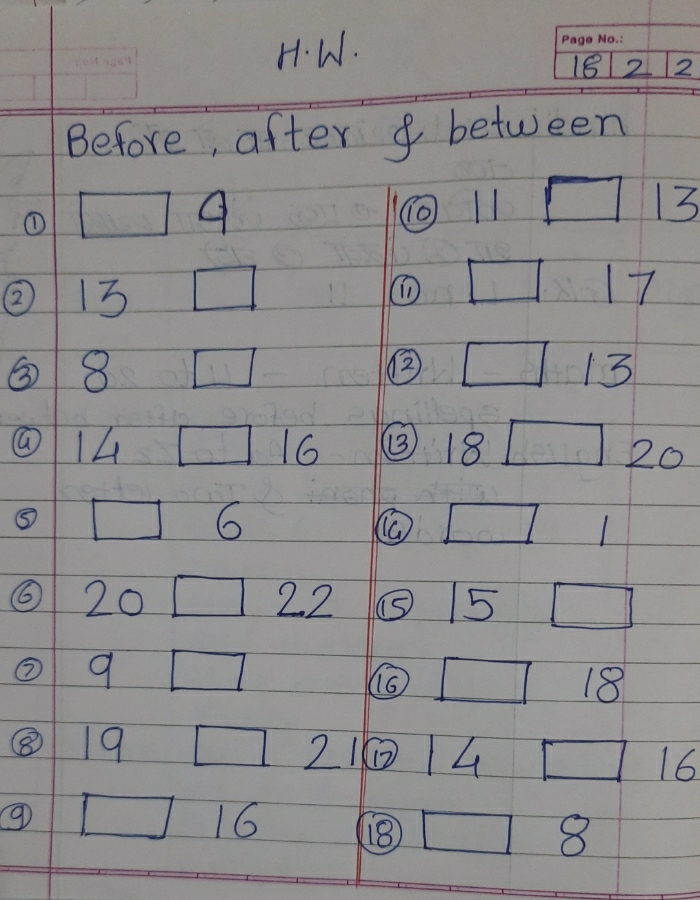 H.W.
Page No.:
18 2 2
Before, after & between
① 9
② 13
③ 8
④ 14 16
⑤ 6
⑥ 20 22
⑦ 9
⑧ 19 21
⑨ 16
⑩ 11 13
⑪ 17
⑫ 13
⑬ 18 20
⑭ 1
⑮ 15
⑯ 18
⑰ 14 16
⑱ 8